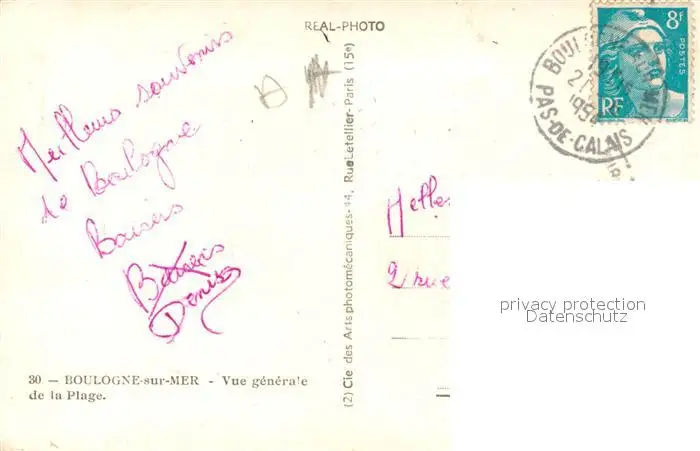 REAL-PHOTO
Meilleurs souvenirs
de Boulogne
Baisers
Denise
30 — BOULOGNE-sur-MER - Vue générale
de la Plage.
(2) Cie des Arts photomécaniques-44, Rue Letellier-Paris (15e)
8F
POSTES
RF
BOUL
1954
PAS-DE-CALAIS
2 rue
privacy protection
Datenschutz